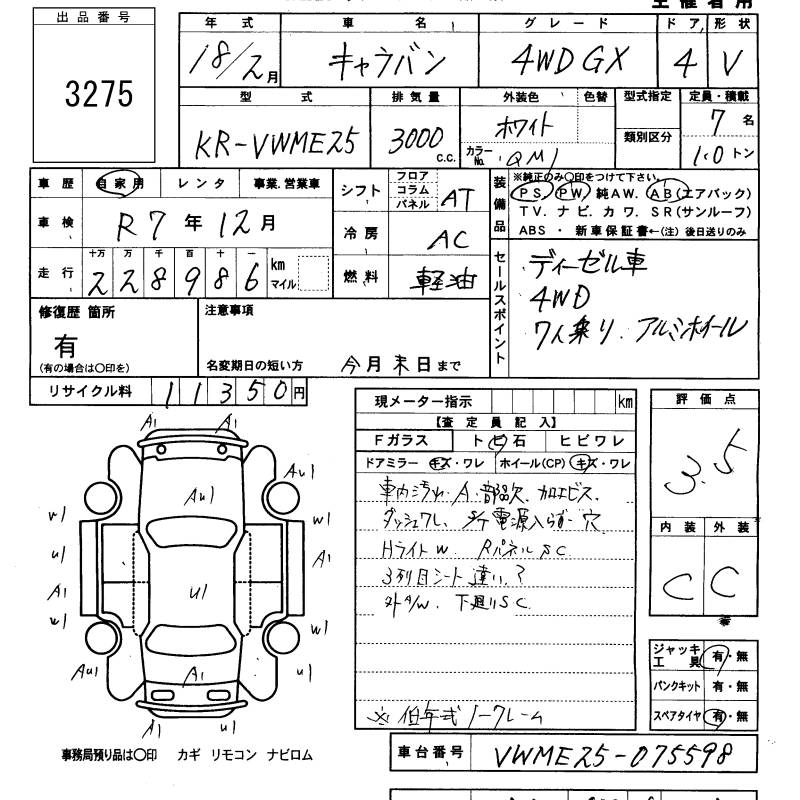 主催者用
出品番号
3275
年式 車名 グレード ドア 形状
18/2月 キャラバン 4WD GX 4 V
型式 排気量 外装色 色替 型式指定 定員・積載
KR-VWME25 3000 c.c. ホワイト 7名
カラーNo. QM1 類別区分 1.0トン
車歴 自家用 レンタ 事業.営業車
シフト フロア コラム パネル AT
装備品 ※純正のみ〇印をつけて下さい。
PS. PW. 純AW. AB(エアバック)
TV. ナビ. カワ. SR(サンルーフ)
ABS ・ 新車保証書←(注) 後日送りのみ
車検 R7年12月
冷房 AC
走行 十万 万 千 百 十 一
228986 km マイル
燃料 軽油
セールスポイント
ディーゼル車
4WD
7人乗り. アルミホイール
修復歴 箇所
有
(有の場合は〇印を)
注意事項
名変期日の短い方 今月末日まで
リサイクル料 11350円
現メーター指示 km
【査定員記入】
Fガラス トビ石 ヒビワレ
ドアミラー キズ・ワレ ホイール(CP) キズ・ワレ
車内汚れ・A・部品欠. 加工ビス.
ダッシュワレ. S/T電源入らず・穴
Hライト W. Rパネル SC
3列目シート違い?
外A/W. 下廻りSC
※ 低年式ノークレーム
評価点
3.5
内装 外装
C C
ジャッキ工具 有・無
パンクキット 有・無
スペアタイヤ 有・無
A1 A1
AU1 AU1
W1
U1 A1
A1 U1
W1
W1
AU1 A1 U1
A1 U1
事務局預り品は〇印 カギ リモコン ナビロム
車台番号 VWME25-075598